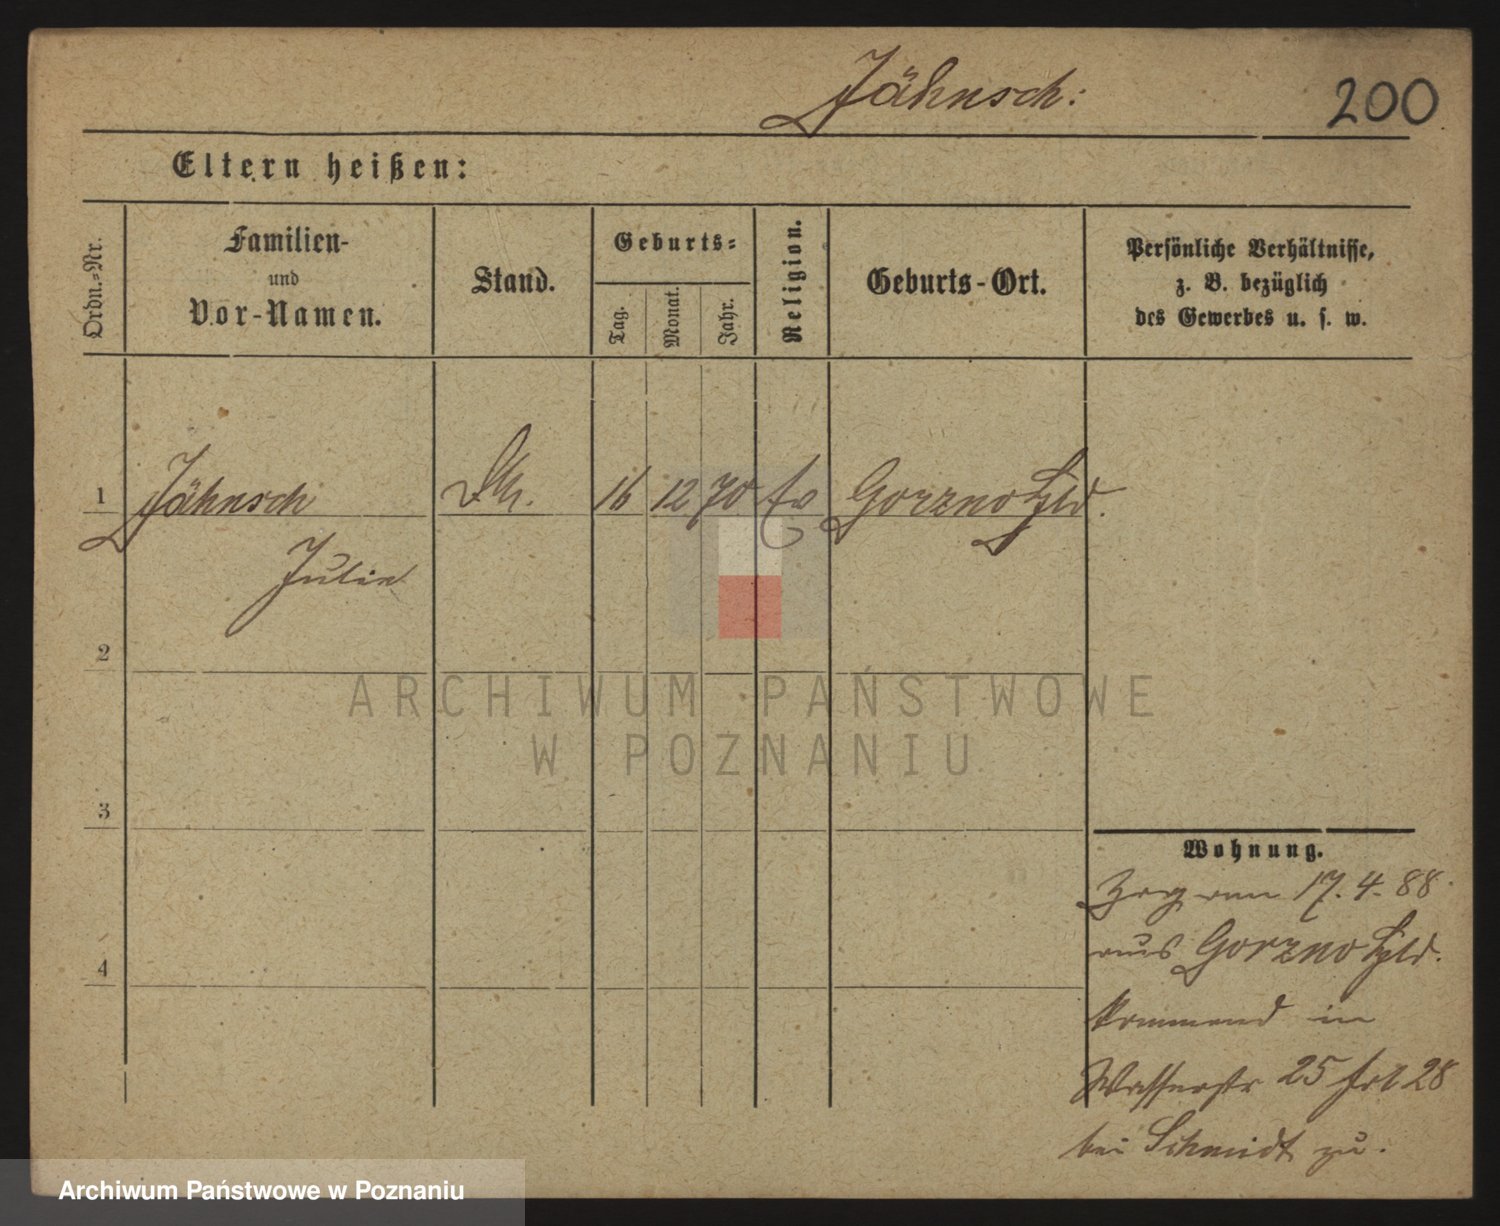 Jähnsch:
200
Eltern heißen:
Ordn.-Nr.
Familien-
und
Vor-Namen.
Stand.
Geburts-
Tag.
Monat.
Jahr.
Religion.
Geburts-Ort.
Persönliche Verhältnisse,
z. B. bezüglich
des Gewerbes u. s. w.
1 Jähnsch 16 12 70 Ev Gorzno
Julie
2
ARCHIWUM PAŃSTWOWE
W POZNANIU
3
Wohnung.
Zog am 17.4.88
aus Gorzno
4
kommend in
Wasserstr 25 28
bei Schmidt zu.
Archiwum Państwowe w Poznaniu